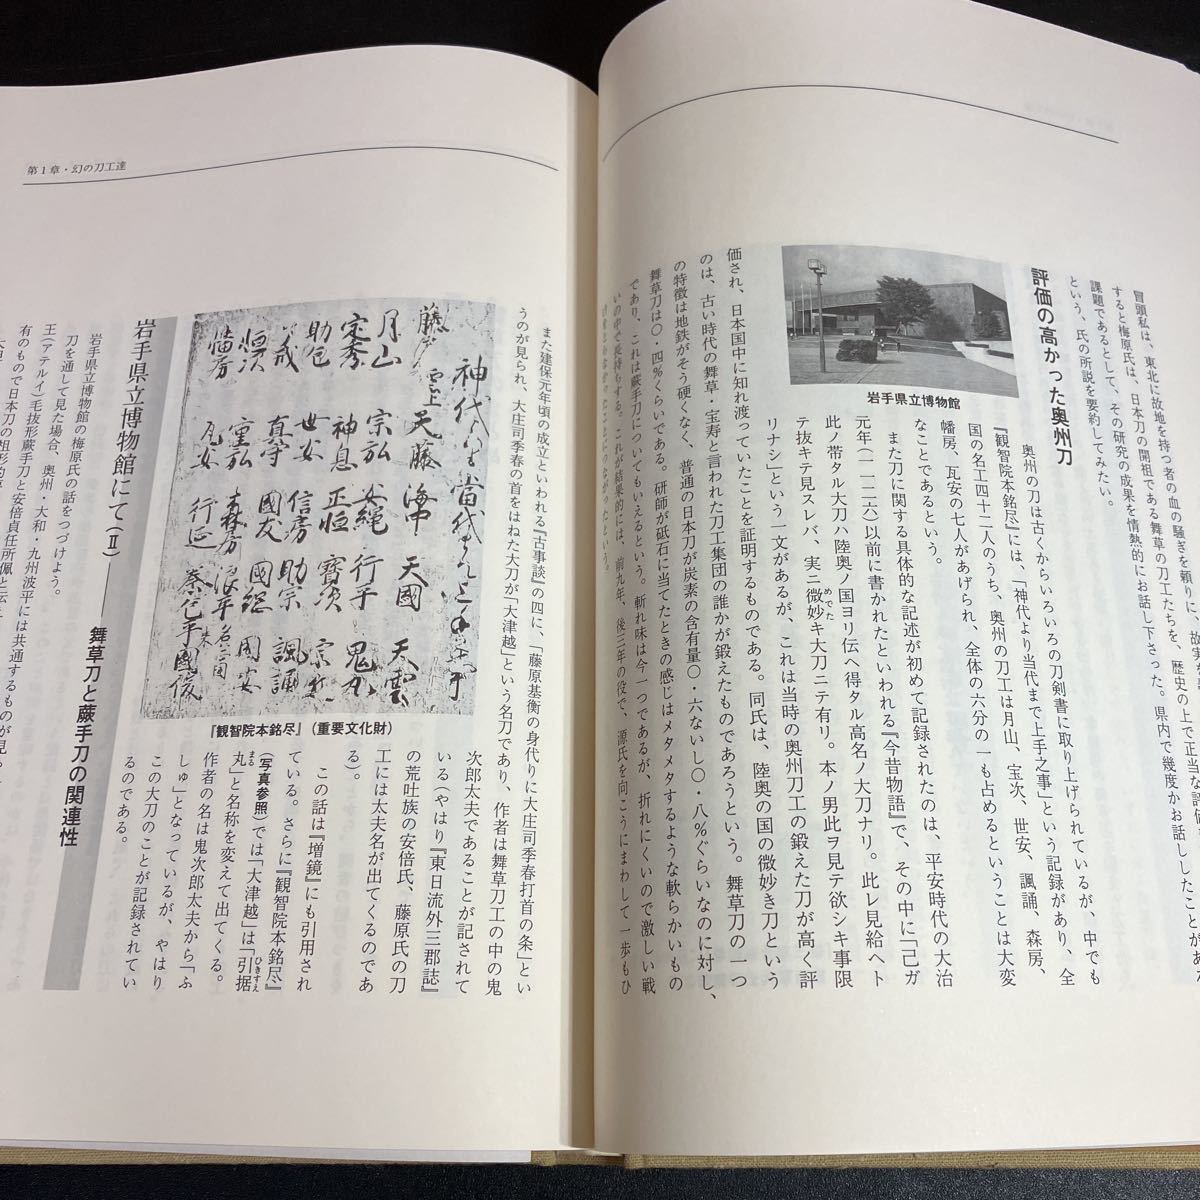 冒頭私は、東北に故地を持つ者の血の騒ぎを頼りに、故実を
すると梅原氏は、日本刀の開祖である舞草の刀工たちを、歴史の上で正当な評価
課題であるとして、その研究の成果を情熱的にお話し下さった。県内で幾度かお話ししたことがあ
という、氏の所説を要約してみたい。
評価の高かった奥州刀
奥州の刀は古くからいろいろの刀剣書に取り上げられているが、中でも
『観智院本銘尽』には、「神代より当代まで上手之事」という記録があり、全
国の名工四十二人のうち、奥州の刀工は月山、宝次、世安、諷誦、森房、
幡房、瓦安の七人があげられ、全体の六分の一も占めるということは大変
なことであるという。
また刀に関する具体的な記述が初めて記録されたのは、平安時代の大治
元年(一一二六)以前に書かれたといわれる『今昔物語』で、その中に「己ガ
此ノ帯タル大刀ハ陸奥ノ国ヨリ伝ヘ得タル高名ノ大刀ナリ。此レ見給ヘト
テ抜キテ見スレバ、実ニ微妙キ大刀ニテ有リ。本ノ男此ヲ見テ欲シキ事限
めでた
リナシ」という一文があるが、これは当時の奥州刀工の鍛えた刀が高く評
岩手県立博物館
価され、日本国中に知れ渡っていたことを証明するものである。同氏は、陸奥の国の微妙き刀という
のは、古い時代の舞草・宝寿と言われた刀工集団の誰かが鍛えたものであろうという。舞草刀の一つ
の特徴は地鉄がそう硬くなく、普通の日本刀が炭素の含有量〇・六ないし〇・八%ぐらいなのに対し、
舞草刀は〇・四%くらいである。研師が砥石に当てたときの感じはメタメタするような軟らかいもの
であり、これは蕨手刀についてもいえるという。斬れ味は今一つであるが、折れにくいので激しい戦
いの中で長持ちする。これが結果的には、前九年、後三年の役で、源氏を向こうにまわして一歩もひ
第1章・幻の刀工達
また建保元年頃の成立といわれる『古事談』の四に、「藤原基衡の身代りに大庄司季春打首の条」とい
うのが見られ、大庄司季春の首をはねた大刀が「大津越」という名刀であり、作者は舞草刀工の中の鬼
次郎太夫であることが記されて
いる(やはり『東日流外三郡誌』
の荒吐族の安倍氏、藤原氏の刀
工には太夫名が出てくるのであ
る)。
この話は『増鏡』にも引用され
ている。さらに『観智院本銘尽』
(写真参照)では「大津越」は「引据
ひきすえ
丸」と名称を変えて出てくる。
まる
作者の名は鬼次郎太夫から「ふ
しゅ」となっているが、やはり
この大刀のことが記録されてい
るのである。
神代より当代まて上手
月山
天藤
海中
天國
天雲
宗弘
安縄
行平
鬼丸
助包
神息
正恒
寶次
世安
信房
助宗
諷誦
恒次
真守
國友
重弘
森房
幡房
瓦安
行正
『観智院本銘尽』(重要文化財)
岩手県立博物館にて(Ⅱ)――舞草刀と蕨手刀の関連性
岩手県立博物館の梅原氏の話をつづけよう。
刀を通して見た場合、奥州・大和・九州波平には共通するものが見
王(アテルイ)毛抜形蕨手刀と安倍貞任所佩と伝
有のもので日本刀の祖形